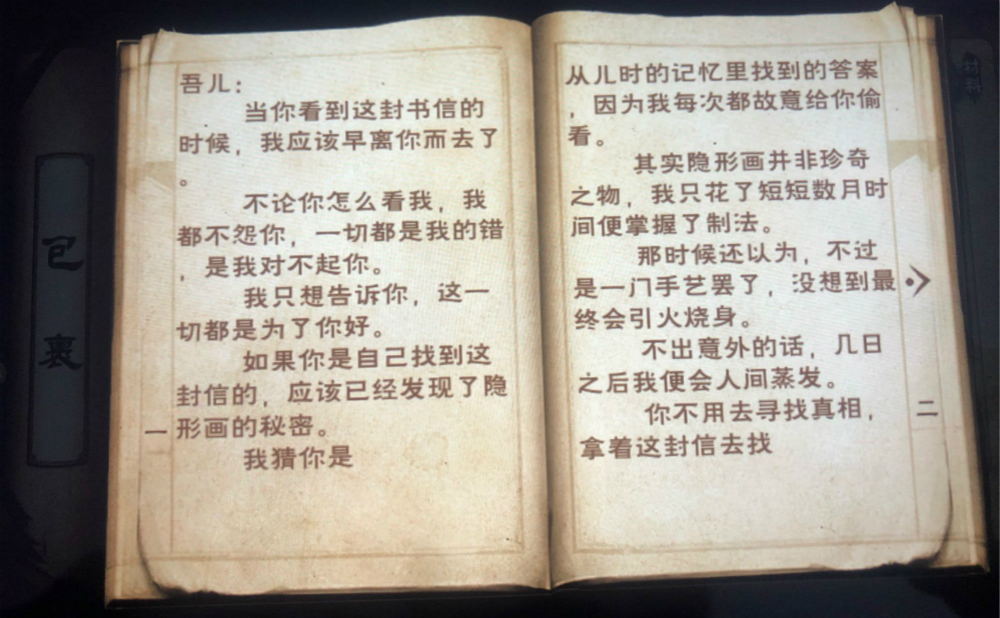 吾儿：
当你看到这封书信的
时候，我应该早离你而去了
。
不论你怎么看我，我
都不怨你，一切都是我的错
，是我对不起你。
我只想告诉你，这一
切都是为了你好。
如果你是自己找到这
封信的，应该已经发现了隐
形画的秘密。
我猜你是
一
从儿时的记忆里找到的答案
，因为我每次都故意给你偷
看。
其实隐形画并非珍奇
之物，我只花了短短数月时
间便掌握了制法。
那时候还以为，不过
是一门手艺罢了，没想到最
终会引火烧身。
不出意外的话，几日
之后我便会人间蒸发。
你不用去寻找真相，
拿着这封信去找
二
包裹
材料